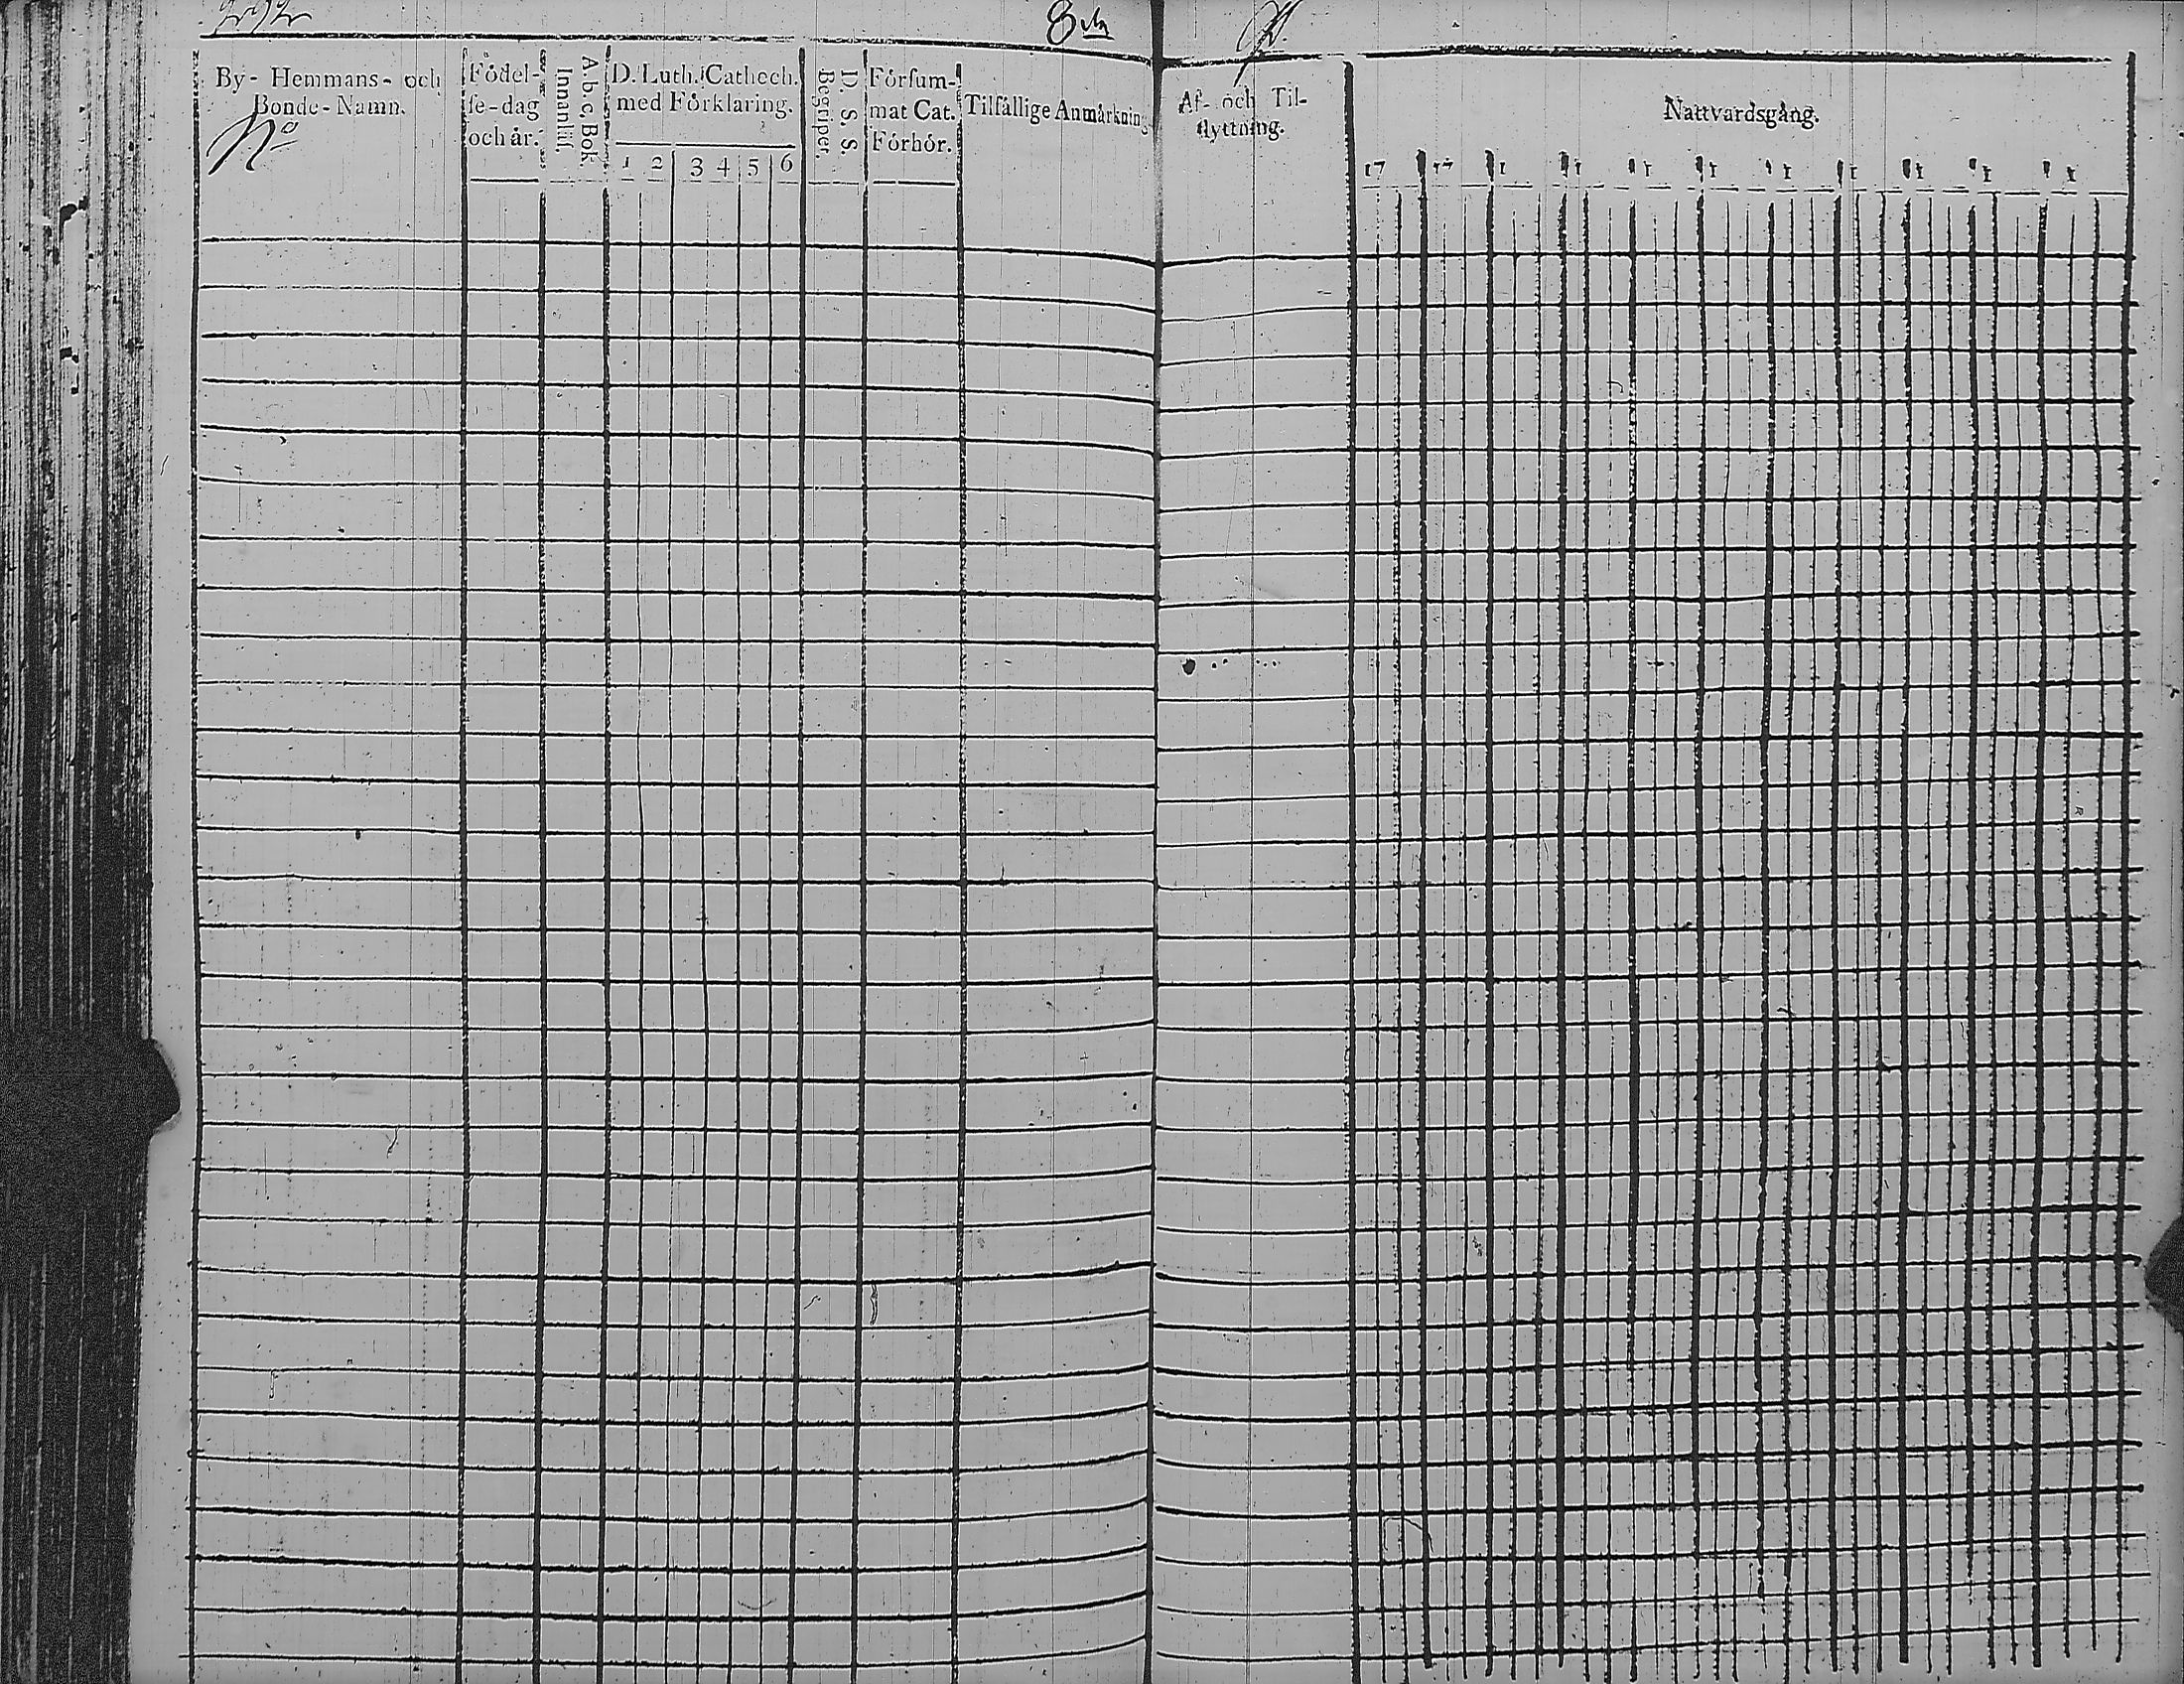 8de
By- Hemmans- och
Bonde-Namn.
No
Födel-
se-dag
och år.
A, b, c, Bok.
Innanläs.
D. Luth. Cathech.
med Förklaring.
1 2 3 4 5 6
D. S. S.
Begriper.
Försum-
mat Cat.
Förhör.
Tilfällige Anmärkning
Af- och Til-
flyttning.
Nattvardsgång.
17 17 1 1 1 1 1 1 1 1 1